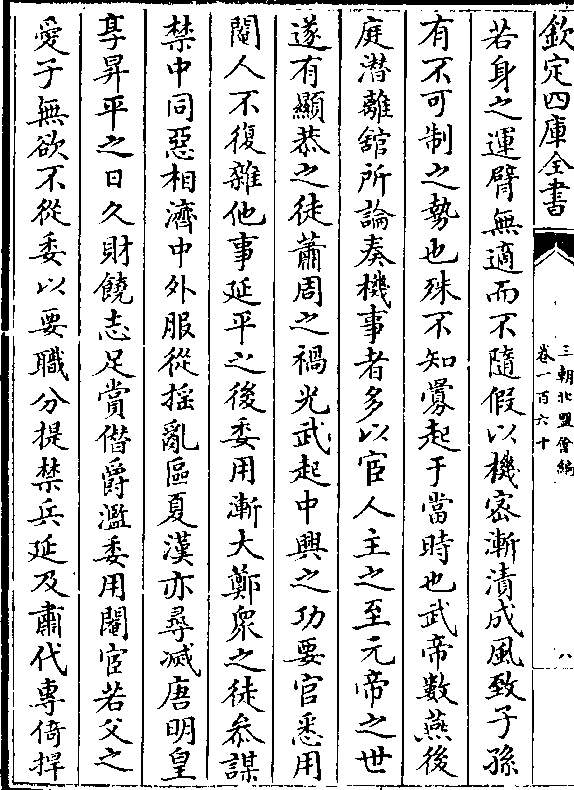 欽定四庫全書
三朝北盟會編
卷一百六十
八
若身之運臂無適而不隨假以機密漸漬成風致子孫
有不可制之勢也殊不知釁起于當時也武帝數燕後
庭潜離舘所論奏機事者多以宦人主之至元帝之世
遂有顯恭之徒蕭周之禍光武起中興之功要官悉用
閹人不復雜他事延平之後委用漸大鄭眾之徒叅謀
禁中同惡相濟中外服從揺亂區夏漢亦尋滅唐明皇
享昇平之日久財饒志足賞僭爵濫委用閹宦若父之
愛子無欲不從委以要職分提禁兵延及肅代專倚捍